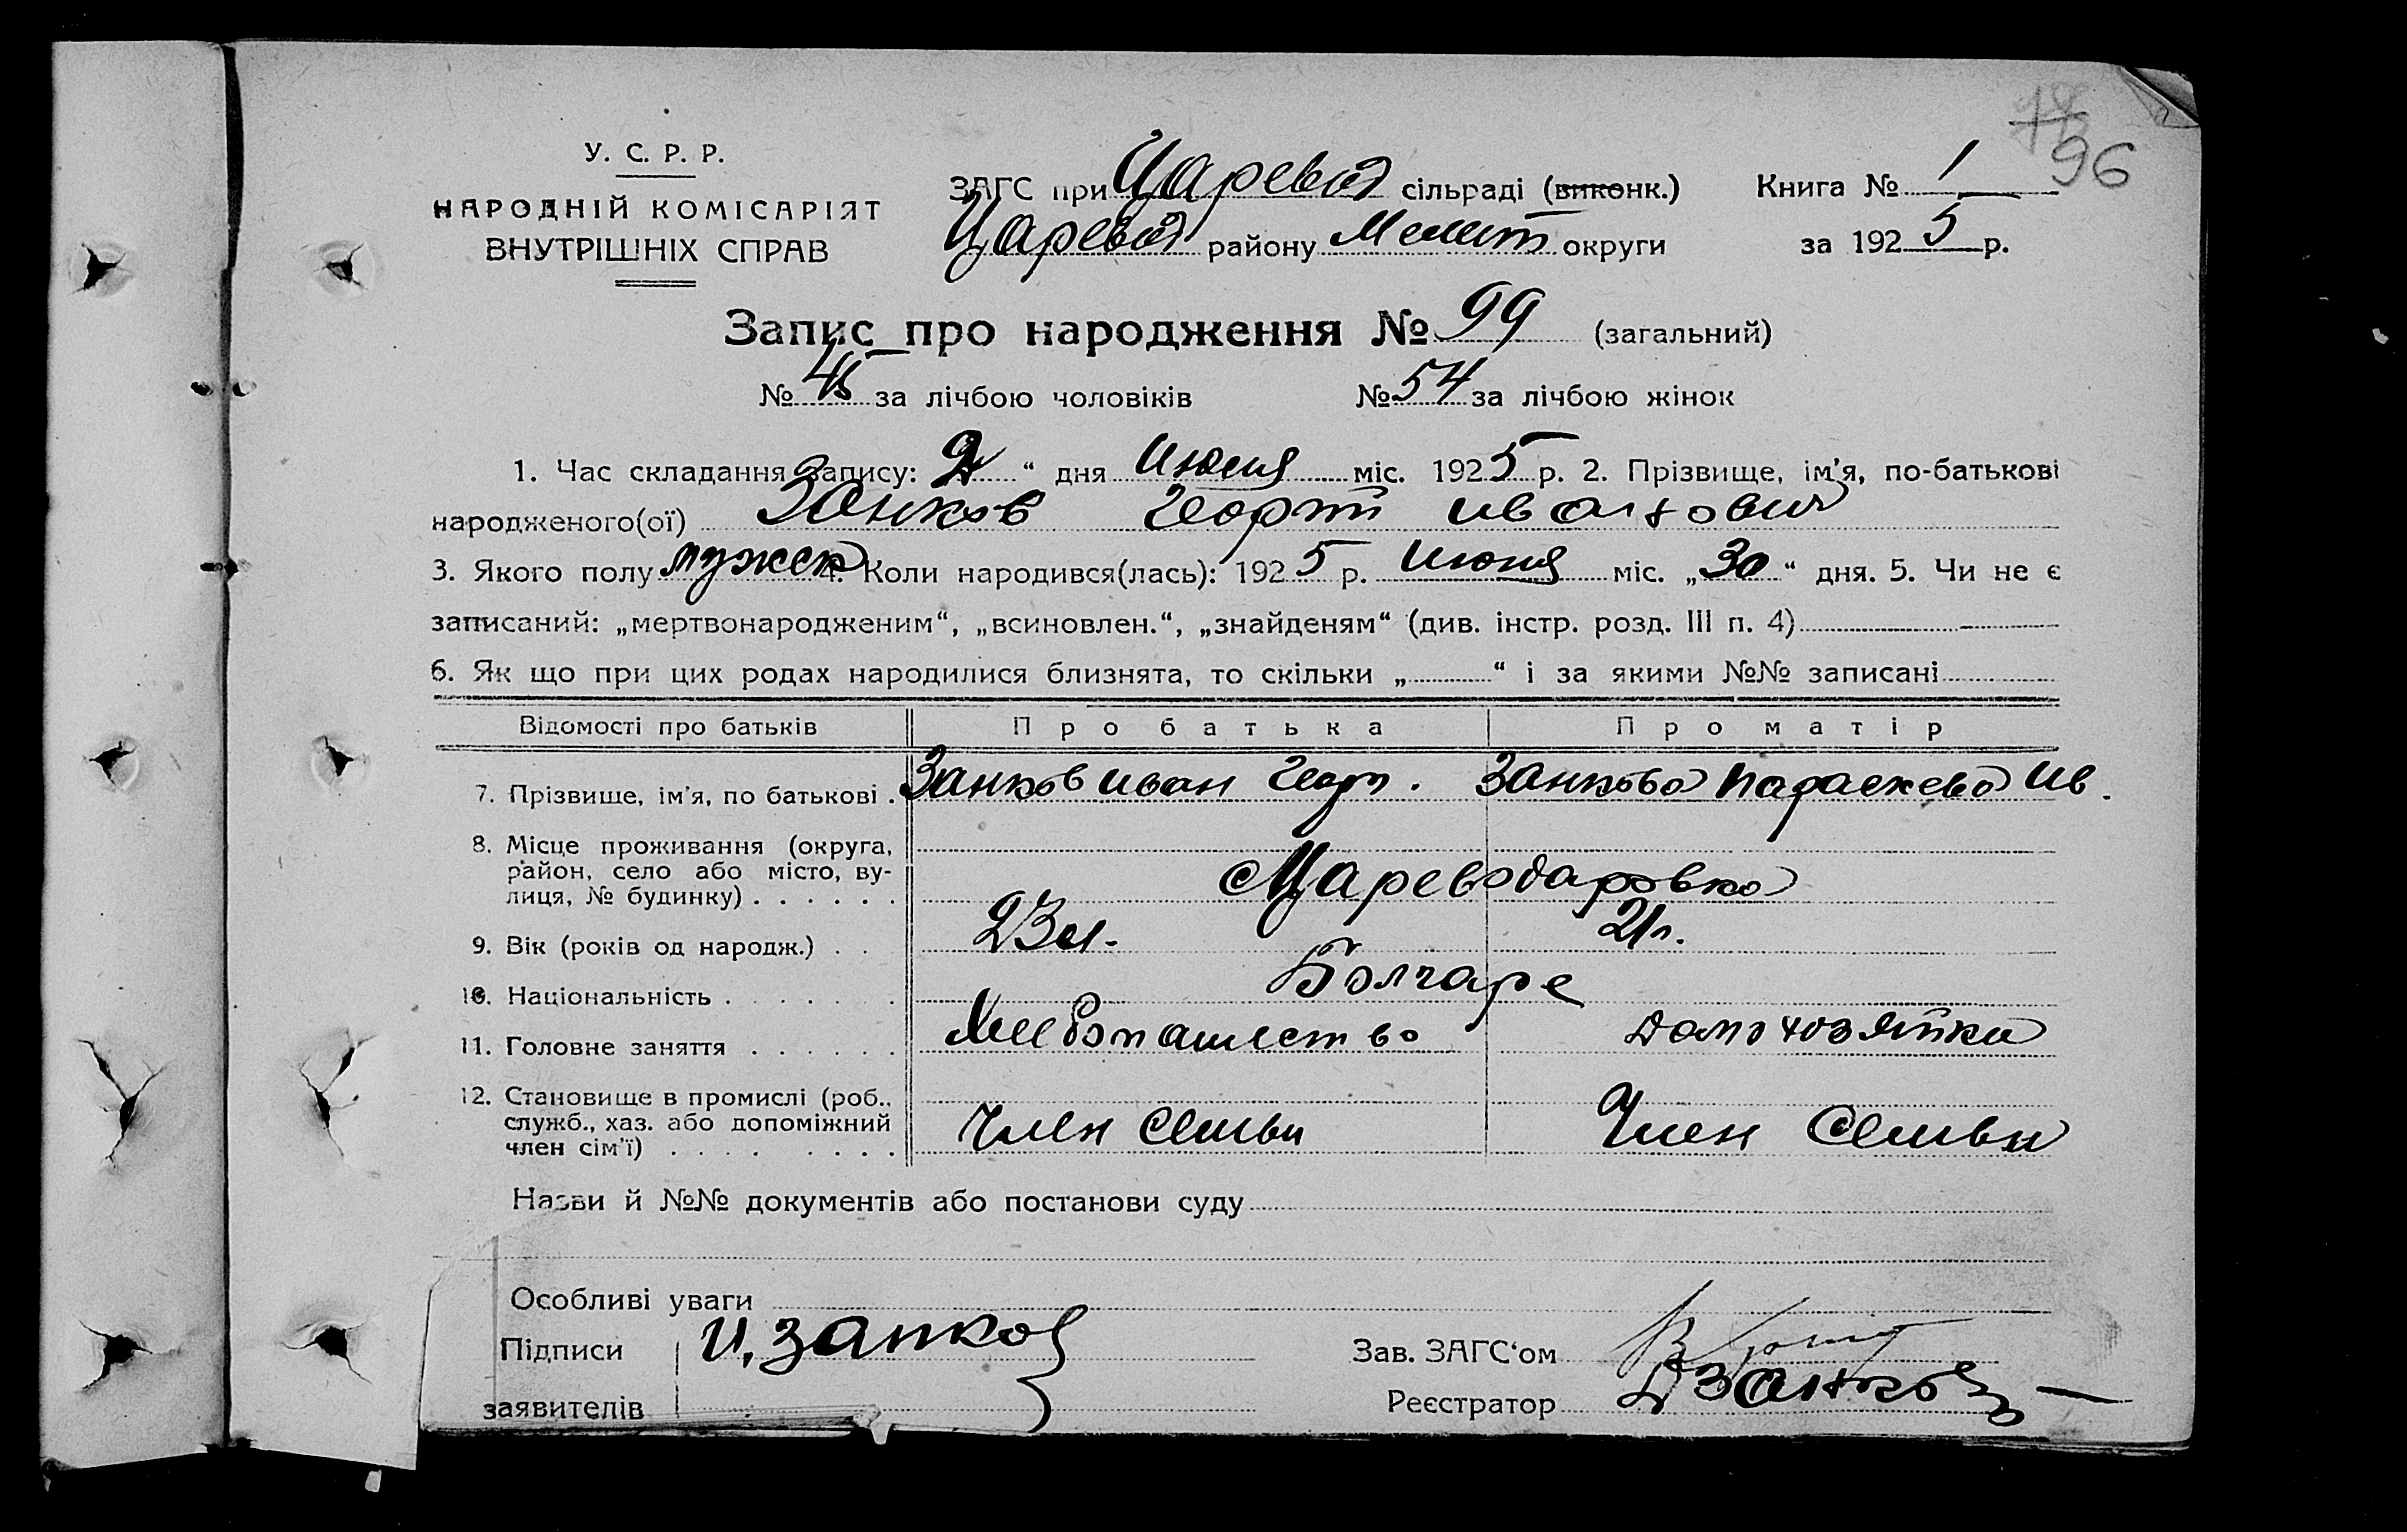 96
У. С. Р. Р.
НАРОДНІЙ КОМІСАРІЯТ
ВНУТРІШНІХ СПРАВ
ЗАГС при Царевод сільраді (виконк.) Книга № 1
Царевод району Мелит округи за 1925 р.
Запис про народження № 99 (загальний)
№ 45 за лічбою чоловіків № 54 за лічбою жінок
1. Час складання запису: “ дня Июля міс. 1925 р. 2. Прізвище, ім’я, по-батькові
народженого(ої) Занков Георгий Иванович
3. Якого полу мужск 4. Коли народився(лась): 1925 р. Июня міс. „30“ дня. 5. Чи не є
записаний: „мертвонародженим“, „всиновлен.“, „знайденям“ (див. інстр. розд. III п. 4)
6. Як що при цих родах народилися близнята, то скільки „ “ і за якими №№ записані
Відомості про батьків Про батька Про матір
7. Прізвище, ім’я, по батькові . Занков Иван Георг. Занкова Параскева Ив.
8. Місце проживання (округа,
район, село або місто, ву-
лиця, № будинку) . . . . . . Цареводаровка
9. Вік (років од народж.) . . 23 л. 21 г.
10. Національність . . . . . . Болгаре
11. Головне заняття . . . . . . Хлебопашество Домохозяйка
12. Становище в промислі (роб.,
служб., хаз. або допоміжний
член сім’ї) . . . . . . . . Член Семьи Член Семьи
Назви й №№ документів або постанови суду
Особливі уваги
Підписи И. Занков Зав. ЗАГС‘ом
заявителів Реєстратор ДЗанков